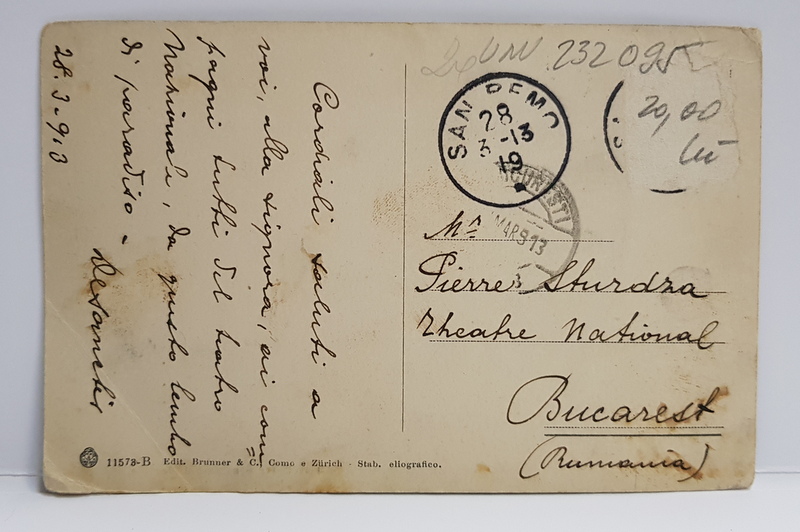 Cordiali saluti a
voi, alla signora, ai com=
pagni tutti del teatro
Nazionale, da questo lembo
di paradiso -
28.3.913
232095
20,00
lei
SAN REMO
28
3-13
19
BUCURESTI
MAR 913
Mr
Pierre Sturdza
Theatre National
Bucarest
(Rumania)
11578-B Edit. Brunner & C., Como e Zürich - Stab. eliografico.